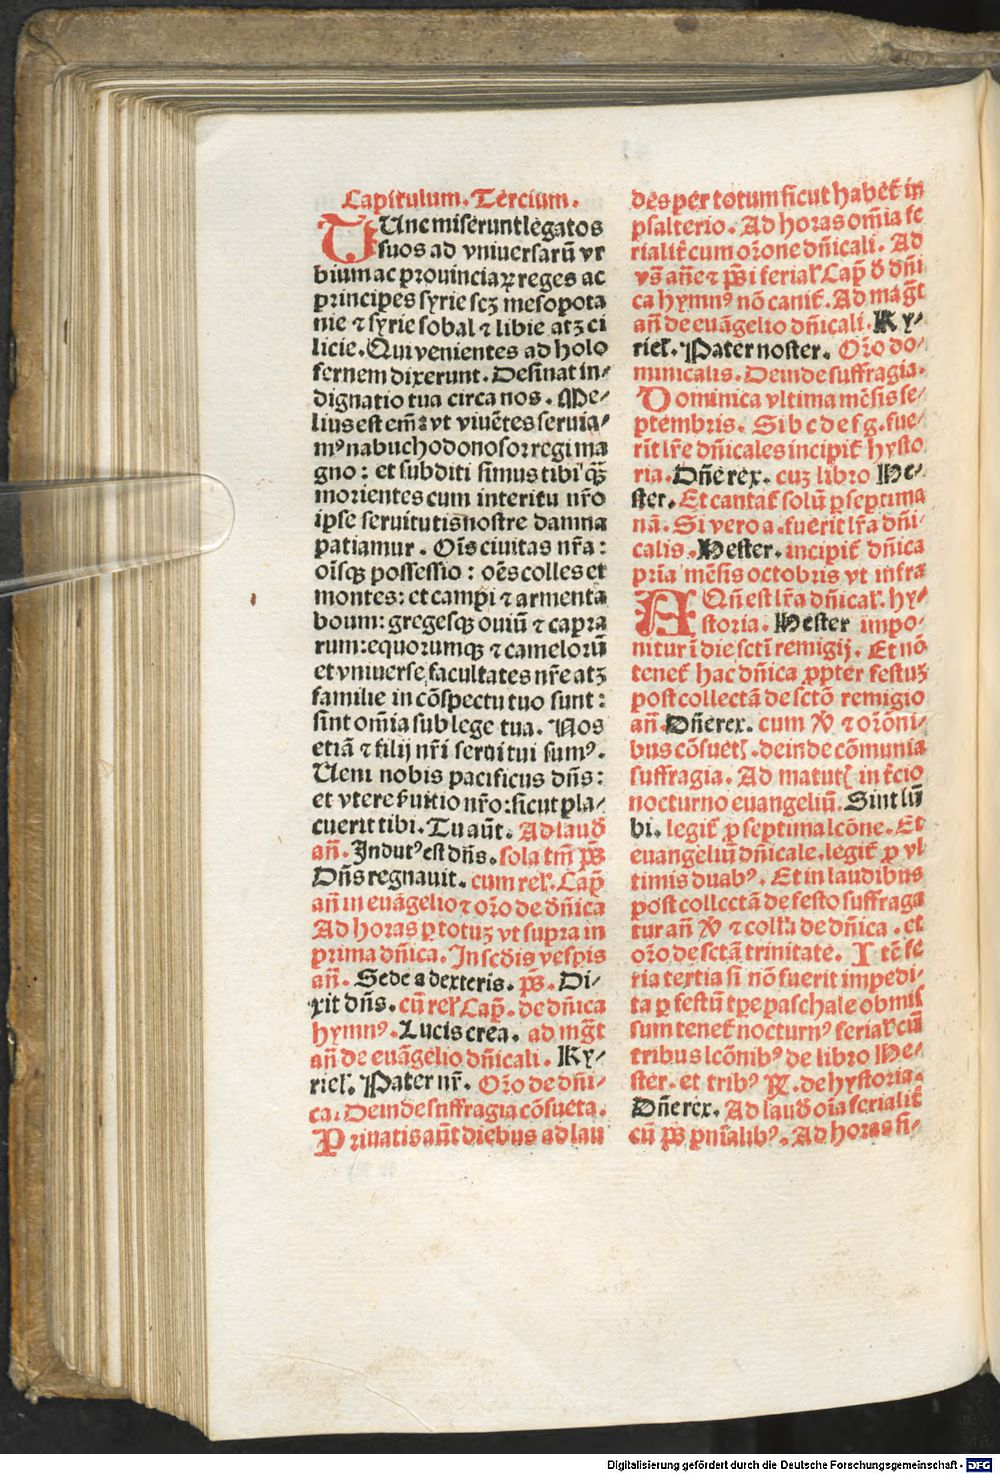 Capitulum. Tercium.
TUnc miserunt legatos
suos ad vniuersarū vr
bium ac prouinciaꝝ reges ac
principes syrie scꝫ mesopota
nie ⁊ syrie sobal ⁊ libie atꝫ ci
licie. Qui venientes ad holo
fernem dixerunt. Desinat in⸗
dignatio tua circa nos. Me⸗
lius est em̄: vt viuētes seruia⸗
mꝰ nabuchodonosor regi ma
gno: et subditi simus tibi qꝫ̄
morientes cum interitu nr̄o
ipse seruitutis nostre damna
patiamur. Oīs ciuitas nr̄a:
oīsqꝫ possessio: oēs colles et
montes: et campi ⁊ armenta
boum: gregesqꝫ ouiū ⁊ capra
rum: equorumqꝫ ⁊ camelorū
et vniuerse facultates nr̄e atꝫ
familie in cōspectu tuo sunt:
sint om̄ia sub lege tua. Nos
etiā ⁊ filij nr̄i serui tui sumꝰ.
Ueni nobis pacificus dn̄s:
et vtere ẜuitio nr̄o: sicut pla⸗
cuerit tibi. Tu aūt. Ad laud̄
an̄. Indutꝰ est dn̄s. sola tm̄ pꝫ̄
Dn̄s regnauit. cum rel'. Cap̄
an̄ in euāgelio ⁊ or̄o de dn̄ica
Ad horas ꝑ totuꝫ vt supra in
prima dn̄ica. In scd̄is vesꝑis
an̄. Sede a dexteris. pꝫ̄. Di⸗
xit dn̄s. cū rel' Cap̄. de dn̄ica
hymnꝰ. Lucis crea. ad mḡt
an̄ de euāgelio dn̄icali. Ky⸗
riel'. Pater nr̄. Or̄o de dn̄i⸗
ca. Deinde suffragia cōsueta.
Priuatis aūt diebus ad lau
des per totum sicut habet̄ in
psalterio. Ad horas om̄ia fe
rialit̄ cum or̄one dn̄icali. Ad
vs̄ an̄e ⁊ pꝫ̄i ferial' Cap̄ d̄ dn̄i
ca hymnꝰ nō canit̄. Ad maḡt
an̄ de euāgelio dn̄icali. Ky⸗
riel'. Pater noster. Or̄o do⸗
minicalis. Deinde suffragia.
Dominica vltima mēsis se⸗
ptembris. Si b c d e f g. fue⸗
rīt lr̄e dn̄icales incipit̄ hysto
ria. Dn̄e rex. cuꝫ libro He⸗
ster. Et cantat̄ solū ꝑ septima
nā. Si vero a. fuerit lr̄a dn̄i⸗
calis. Hester. incipit̄ dn̄ica
pr̄ia mēsis octobris vt infra
AQn̄ est lr̄a dn̄ical'. hy⸗
storia. Hester impo⸗
nitur ī die sctī remigij. Et nō
tenet̄ hac dn̄ica ꝓpter festuꝫ
post collectā de sctō remigio
an̄. Dn̄e rex. cum ꝟ ⁊ or̄oni⸗
bus cōsuetꝭ. deinde cōmunia
suffragia. Ad matutꝭ in t̄cio
nocturno euangeliū. Sint lū
bi. legit̄ ꝓ septima lcōne. Et
euangeliū dn̄icale. legit̄ ꝓ vl
timis duabꝰ. Et in laudibus
post collectā de festo suffraga
tur an̄ ꝟ ⁊ coll'a de dn̄ica. et
or̄o de sctā trinitate. Itē fe
ria tertia si nō fuerit impedi⸗
ta ꝑ festū tꝑe paschale obmis
sum tenet̄ nocturnꝰ ferial' cū
tribus lcōnibꝰ de libro He⸗
ster. et tribꝰ ꝶ. de hystoria.
Dn̄e rex. Ad laud̄ oīa ferialit̄
cū pꝫ̄ pn̄ialibꝰ. Ad horas si⸗
Digitalisierung gefördert durch die Deutsche Forschungsgemeinschaft - DFG